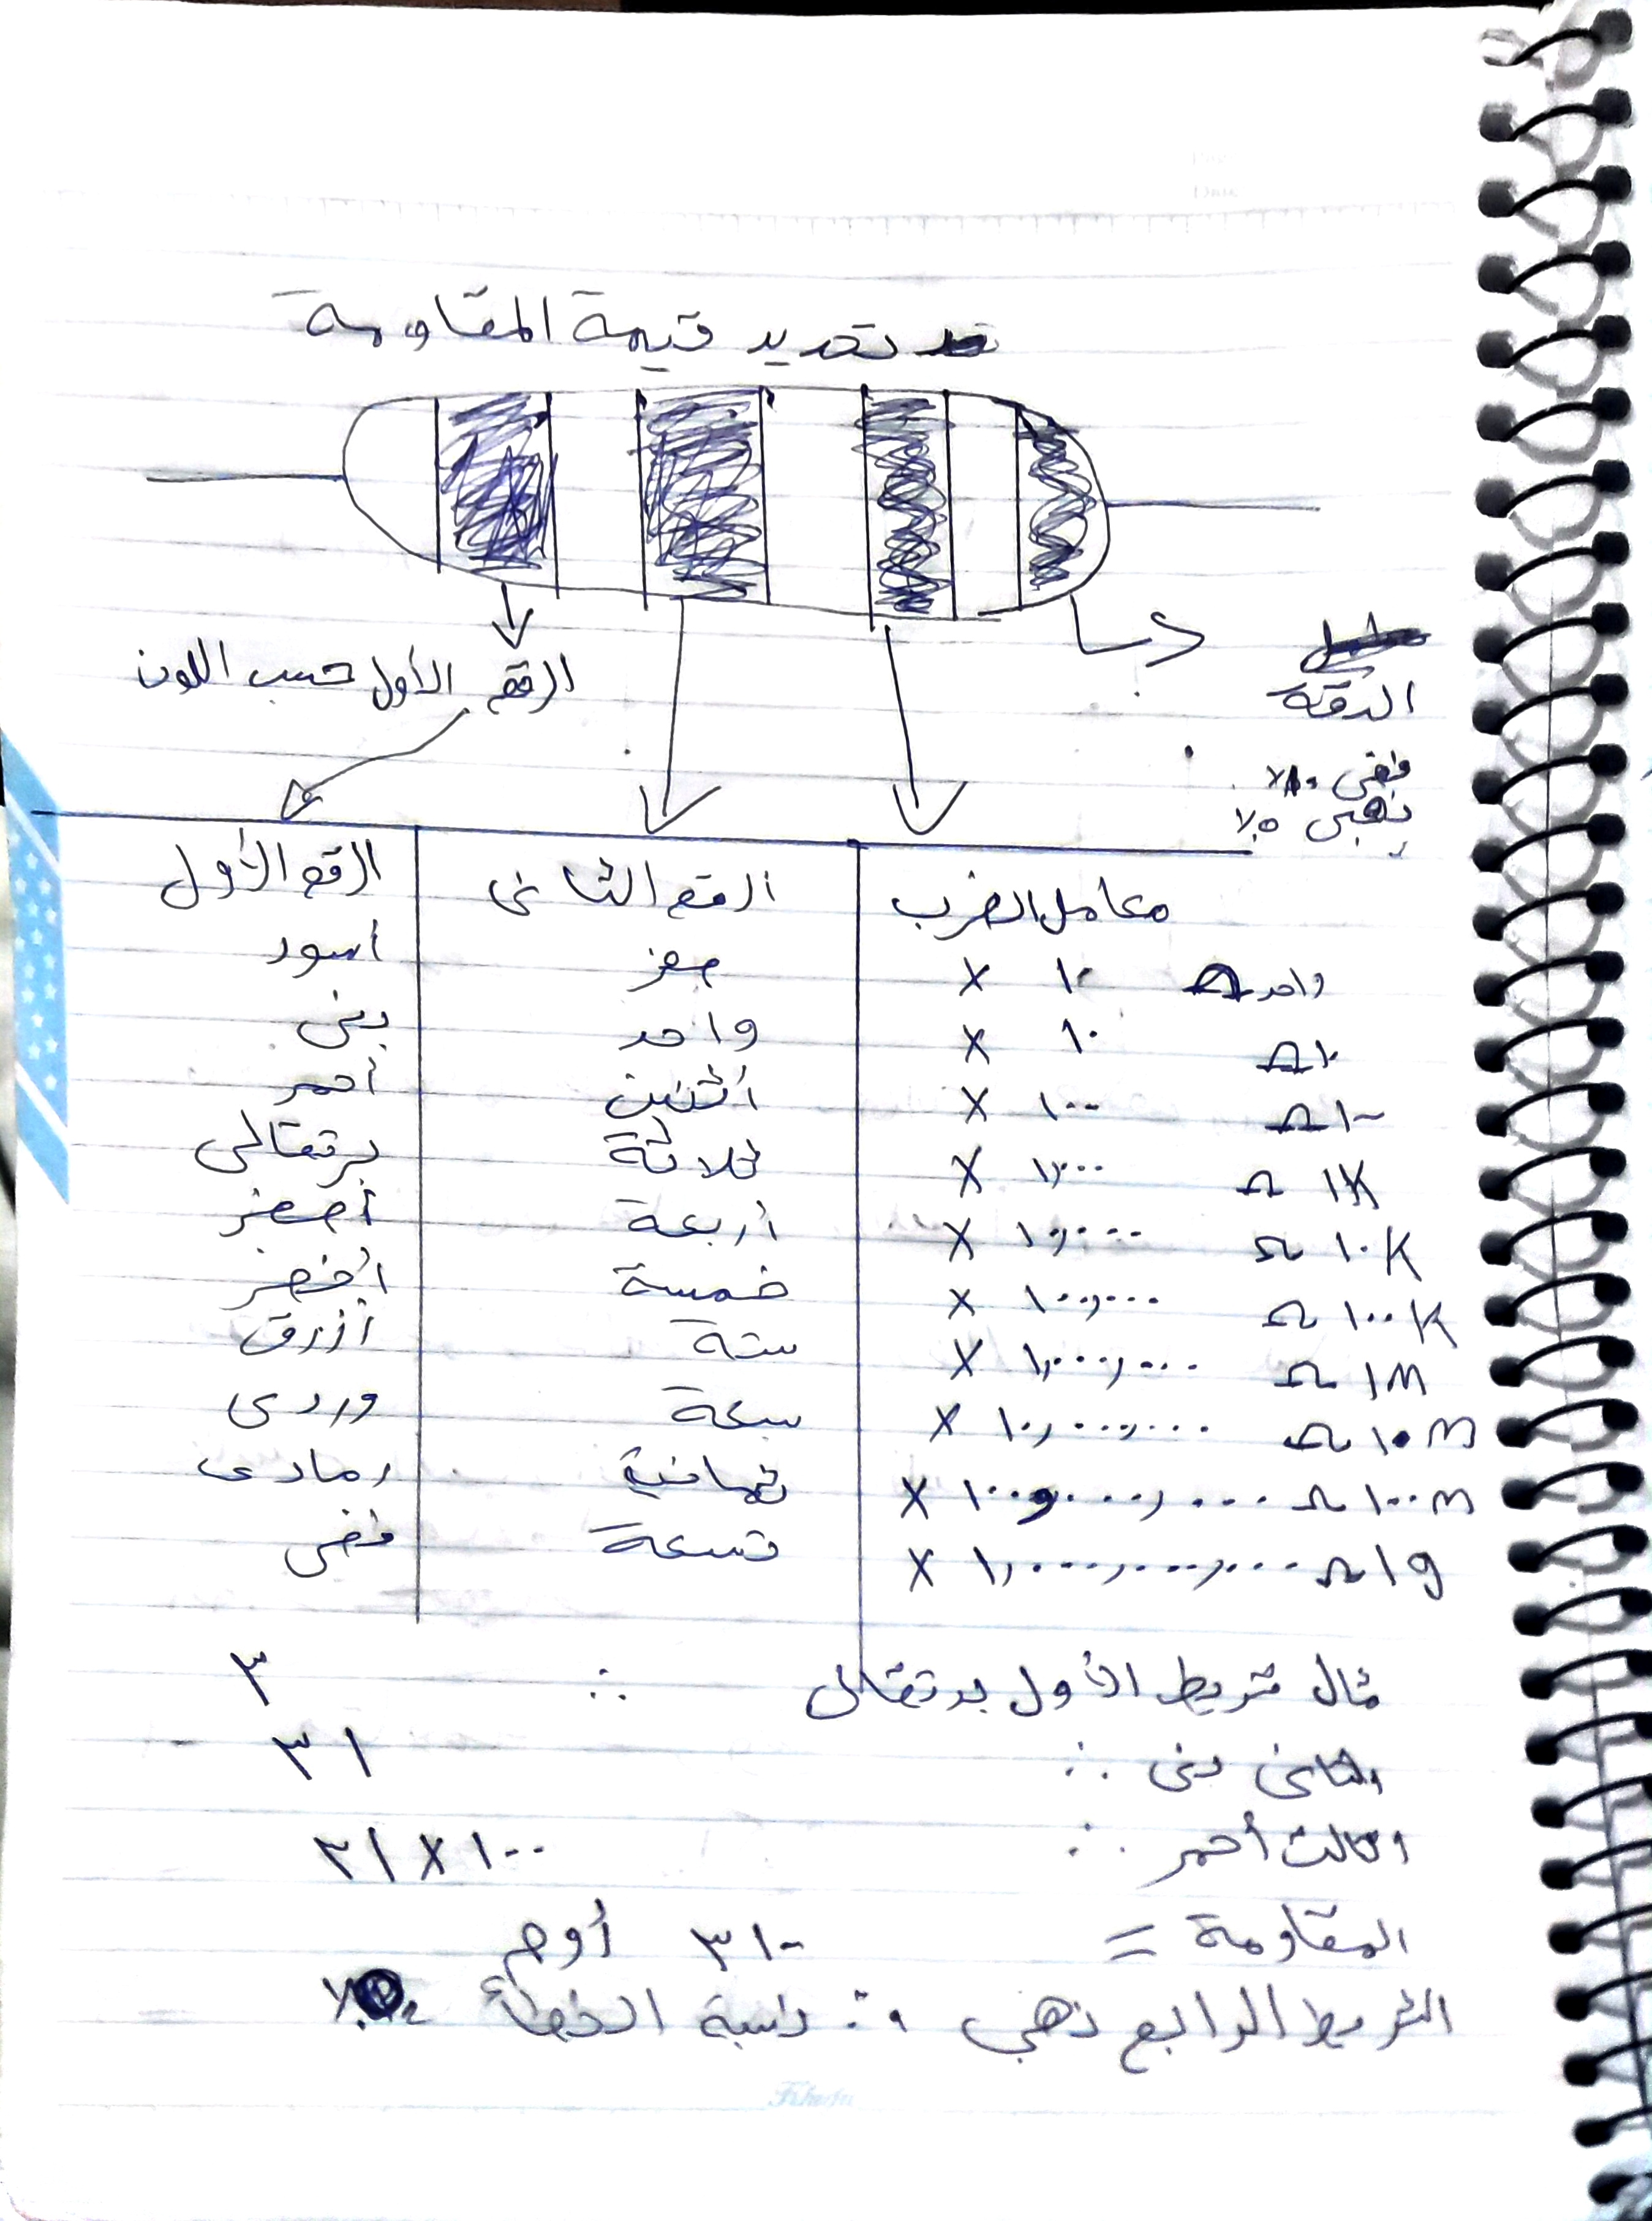 تحديد قيمة المقاومة
الرقم الأول حسب اللون
الدقة
فضى ١٠٪
ذهبى ٥٪
الرقم الأول الرقم الثانى معامل الضرب
اسود صفر X ١٠ واحد Ω
بنى واحد X ١٠ ١٠ Ω
أحمر أثنين X ١٠٠ ١٠٠ Ω
برتقالى ثلاثة X ١,٠٠٠ Ω ١K
أصفر أربعة X ١٠,٠٠٠ Ω ١٠K
أخضر خمسة X ١٠٠,٠٠٠ Ω ١٠٠K
أزرق ستة X ١,٠٠٠,٠٠٠ Ω ١M
وردى سبعة X ١٠,٠٠٠,٠٠٠ Ω ١٠M
رمادى ثمانية X ١٠٠,٠٠٠,٠٠٠ Ω ١٠٠M
فضى تسعة X ١,٠٠٠,٠٠٠,٠٠٠ Ω ١g
مثال شريط الأول برتقالى ∴ ٣
الثانى بنى ∴ ٣١
والثالث أحمر ∴ ٣١ X ١٠٠
المقاومة = ٣١٠٠ أوم
الشريط الرابع ذهبى ∴ نسبة الخطأ